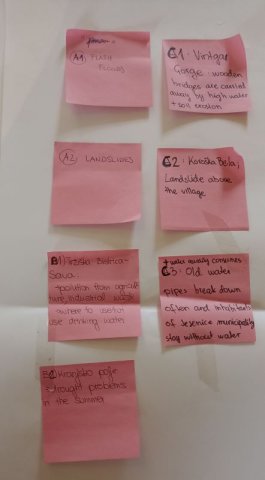 A1 FLASH
FLOODS
C1: Vintgar
Gorge: wooden
bridges are carried
away by high water
+ soil erosion
A2 LANDSLIDES
C2: Koroška Bela,
Landslide above
the village
B1 Tržiška Bistrica-
Sava:
+ pollution from agricul
ture, industrial waste
use drinking water
+ water quality concerns
C3: Old water
pipes break down
often and inhabitants
of Jesenice municipality
stay without water
Kranjsko polje
+ drought problems
in the summer